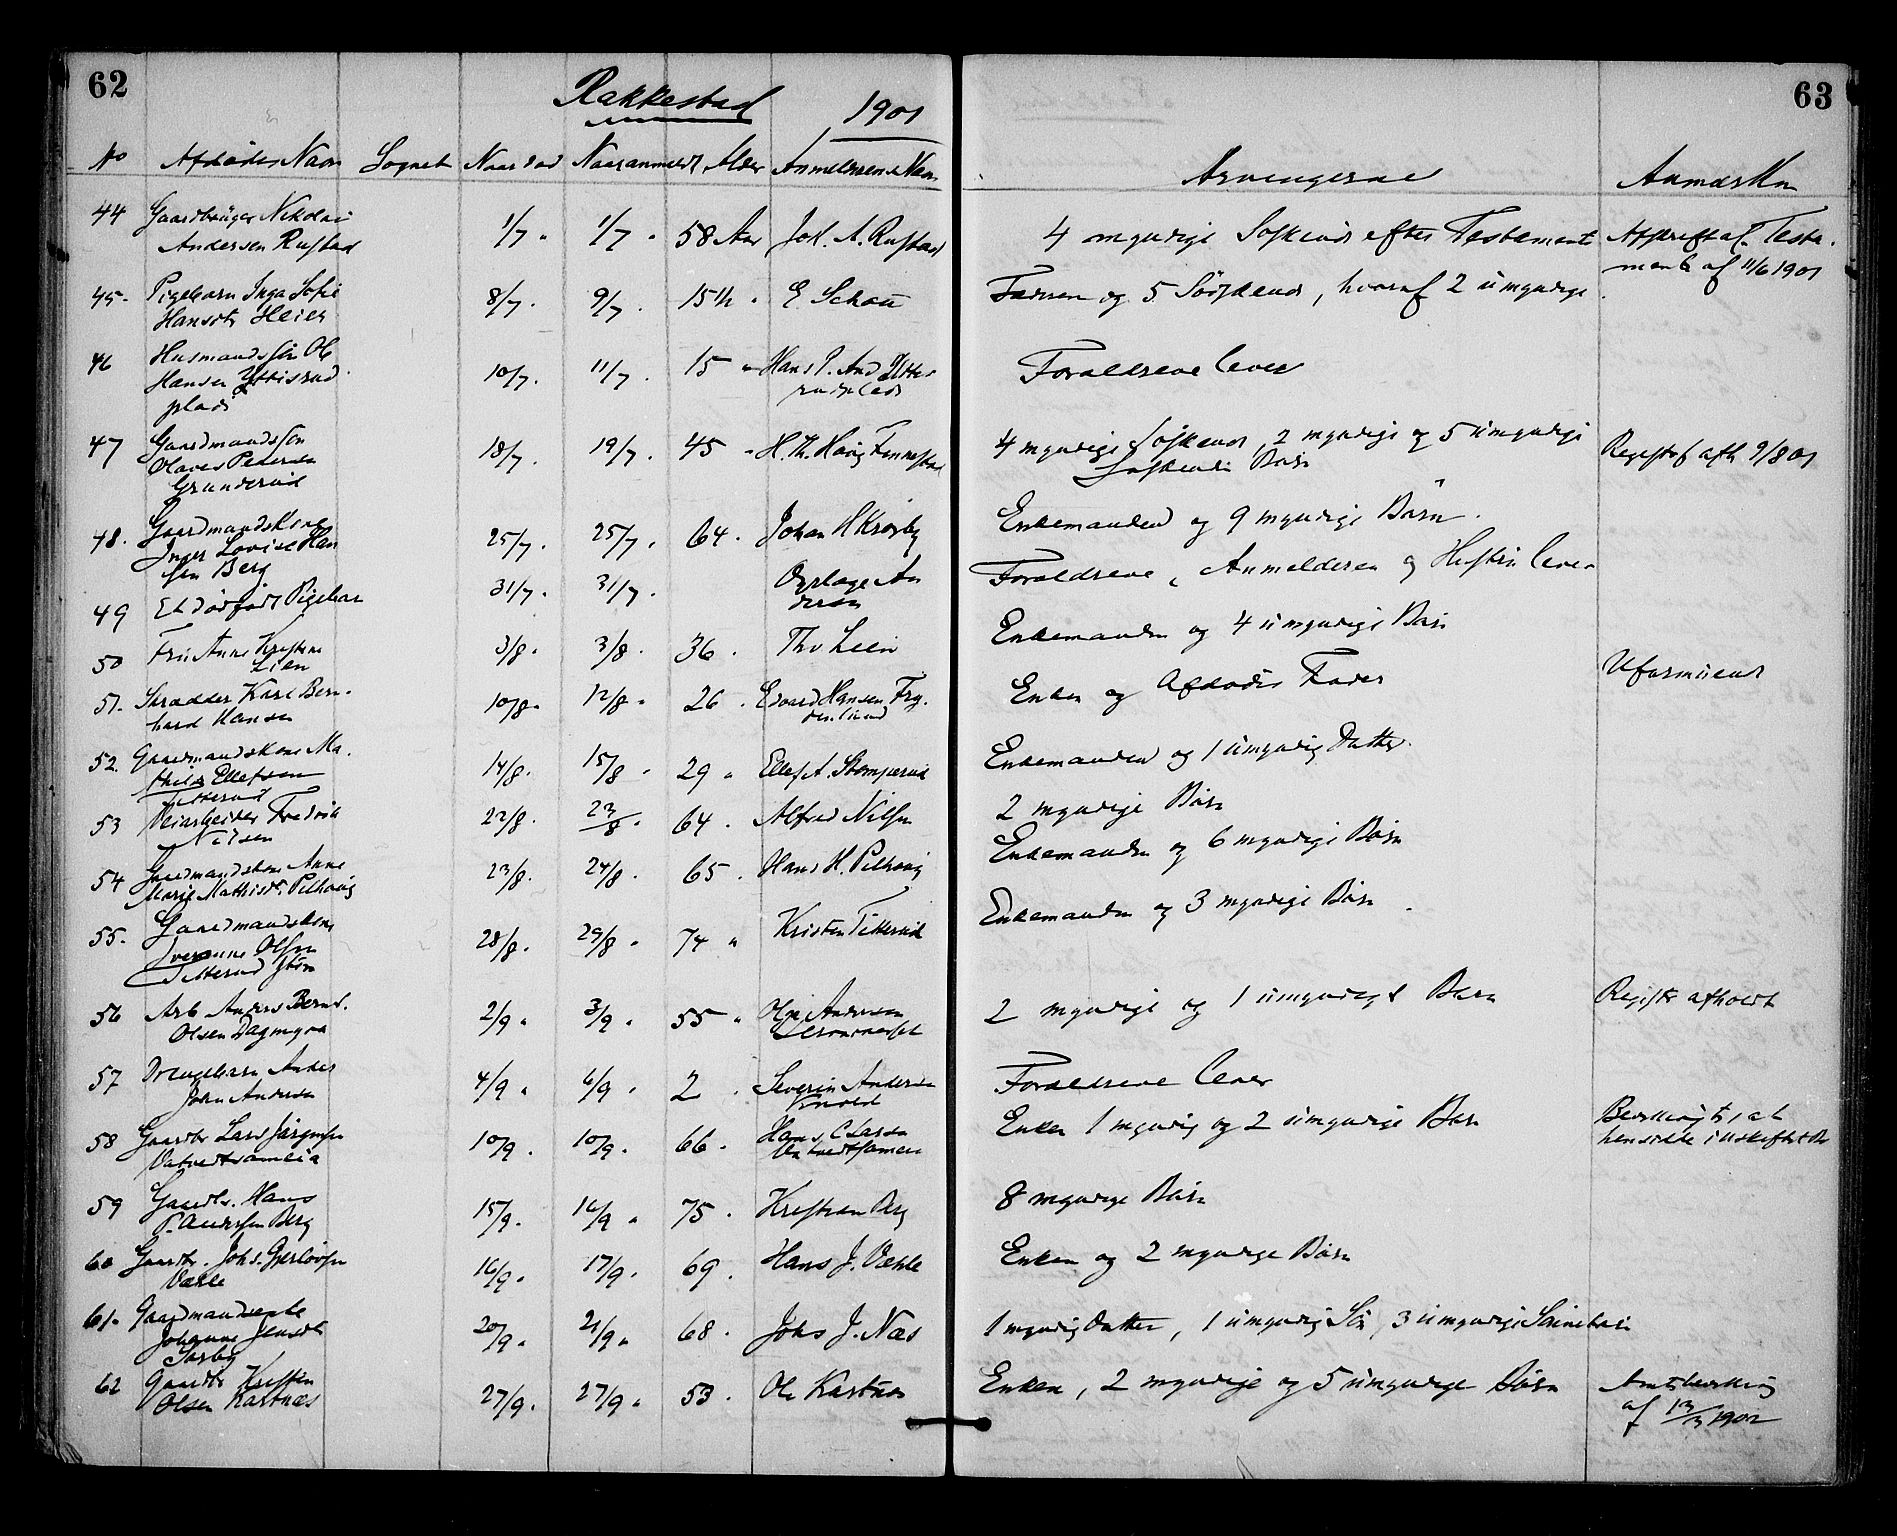 62
Rakkestad
1901
No Afdødes Navn Sognet Naar død Naar anmeldt Alder Anmelderens Navn
44 Gaardbruger Nikolai
Andersen Rustad
1/7 1/7 58 Aar Joh. A. Rustad
45 Pigebarn Inga Sofie
Hansdtr Heier
8/7 9/7 15 E Schou
46 Husmandssøn Ole
Hansen
plads
10/7 11/7 15 Hans P. And
47 Gaardmandssøn
Olaves Pedersen
Grunderud
18/7 19/7 45 H. Th. Haig Finnestad
48 Gaardmandskone
Inger Lovise Han
sen Berg
25/7 25/7 64 Johan H Krosby
49 Et dødfødt Pigebarn
31/7 31/7 An
dersen
50 Fru Anne Kristine
Lien
3/8 3/8 36 Thv Lien
51 Skrædder Karl Bern-
hard Hansen
10/8 12/8 26 Edvard Hansen Fry-
denlund
52 Gaardmandskone Ma-
thilde Ellefsen
Titterud
14/8 15/8 29 Ellef A. Stomperud
53 Veiarbeider Fredrik
Nilsen
22/8 23/8 64 Alfred Nilsen
54 Gaardmandskone Anne
Marie Mathisdtr Pilhaug
23/8 24/8 65 Hans H. Pilhaug
55 Gaardmandskone
Iveranne Olsen
Titterud
28/8 29/8 74 Kristen Titterud
56 Arb Anders Bernt
Olsen
2/9 3/9 55 Olga Andersen
57 Drengebarn Anders
John Andersen
4/9 6/9 2 Severin Andersen
58 Gaardbr Lars Jørgensen
10/9 10/9 66 Hans C Larsen
59 Gaardbr. Hans
P. Andersen Berg
15/9 16/9 75 Kristian Berg
60 Gaardbr. Johs.
Væhle
16/9 17/9 69 Hans J. Væhle
61 Gaardmandsenke
Johanne Jensdtr
20/9 21/9 68 Johs J. Næs
62 Gaardbr Kristian
Olsen Kastnæs
27/9 27/9 53 Ole Kastnæs
63
Arvingerne Anmærkn
4 myndige Søskende efter Testament Afskrift af Testa-
ment af 11/6 1901
Faderen og 5 Søskende, hvoraf 2 umyndige
Forældrene lever
4 myndige Søskende, 2 myndige og 5 umyndige
Søskendes Børn
Registrf afh 9/8 01
Enkemanden og 9 myndige Børn
Forældrene, Anmelderen og Hustru lever
Enkemanden og 4 umyndige Børn
Enken og Afdødes Fader Uformuende
Enkemanden og 1 umyndig Datter
2 myndige Børn
Enkemanden og 6 myndige Børn
Enkemanden og 3 myndige Børn
2 myndige og 1 umyndigt Barn Registr afholdt
Forældrene lever
Enken 1 myndig og 2 umyndige Børn
hensidde i uskiftet Bo
8 myndige Børn
Enken og 2 myndige Børn
1 myndig Datter, 1 umyndig Søn, 3 umyndige Sønnebørn
Enken, 2 myndige og 5 umyndige Børn
af 13/3 1902